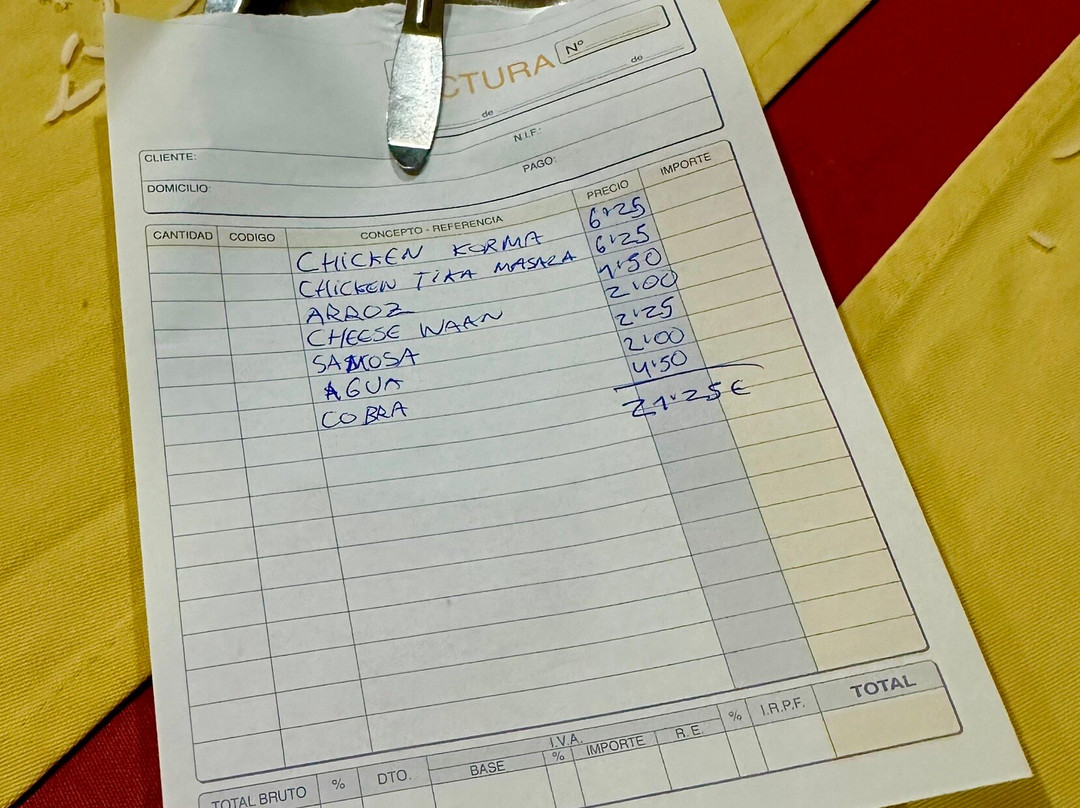 CTURA
Nº
de
de
CLIENTE:
N.I.F.:
DOMICILIO:
PAGO:
CANTIDAD CODIGO CONCEPTO - REFERENCIA PRECIO IMPORTE
CHICKEN KORMA 6'25
CHICKEN TIKA MASALA 6'25
ARROZ 1'50
CHEESE NAAN 2'00
SAMOSA 2'25
AGUA 2'00
COBRA 4'50
21'25€
TOTAL BRUTO % DTO. I.V.A. BASE % IMPORTE R.E. % I.R.P.F. TOTAL